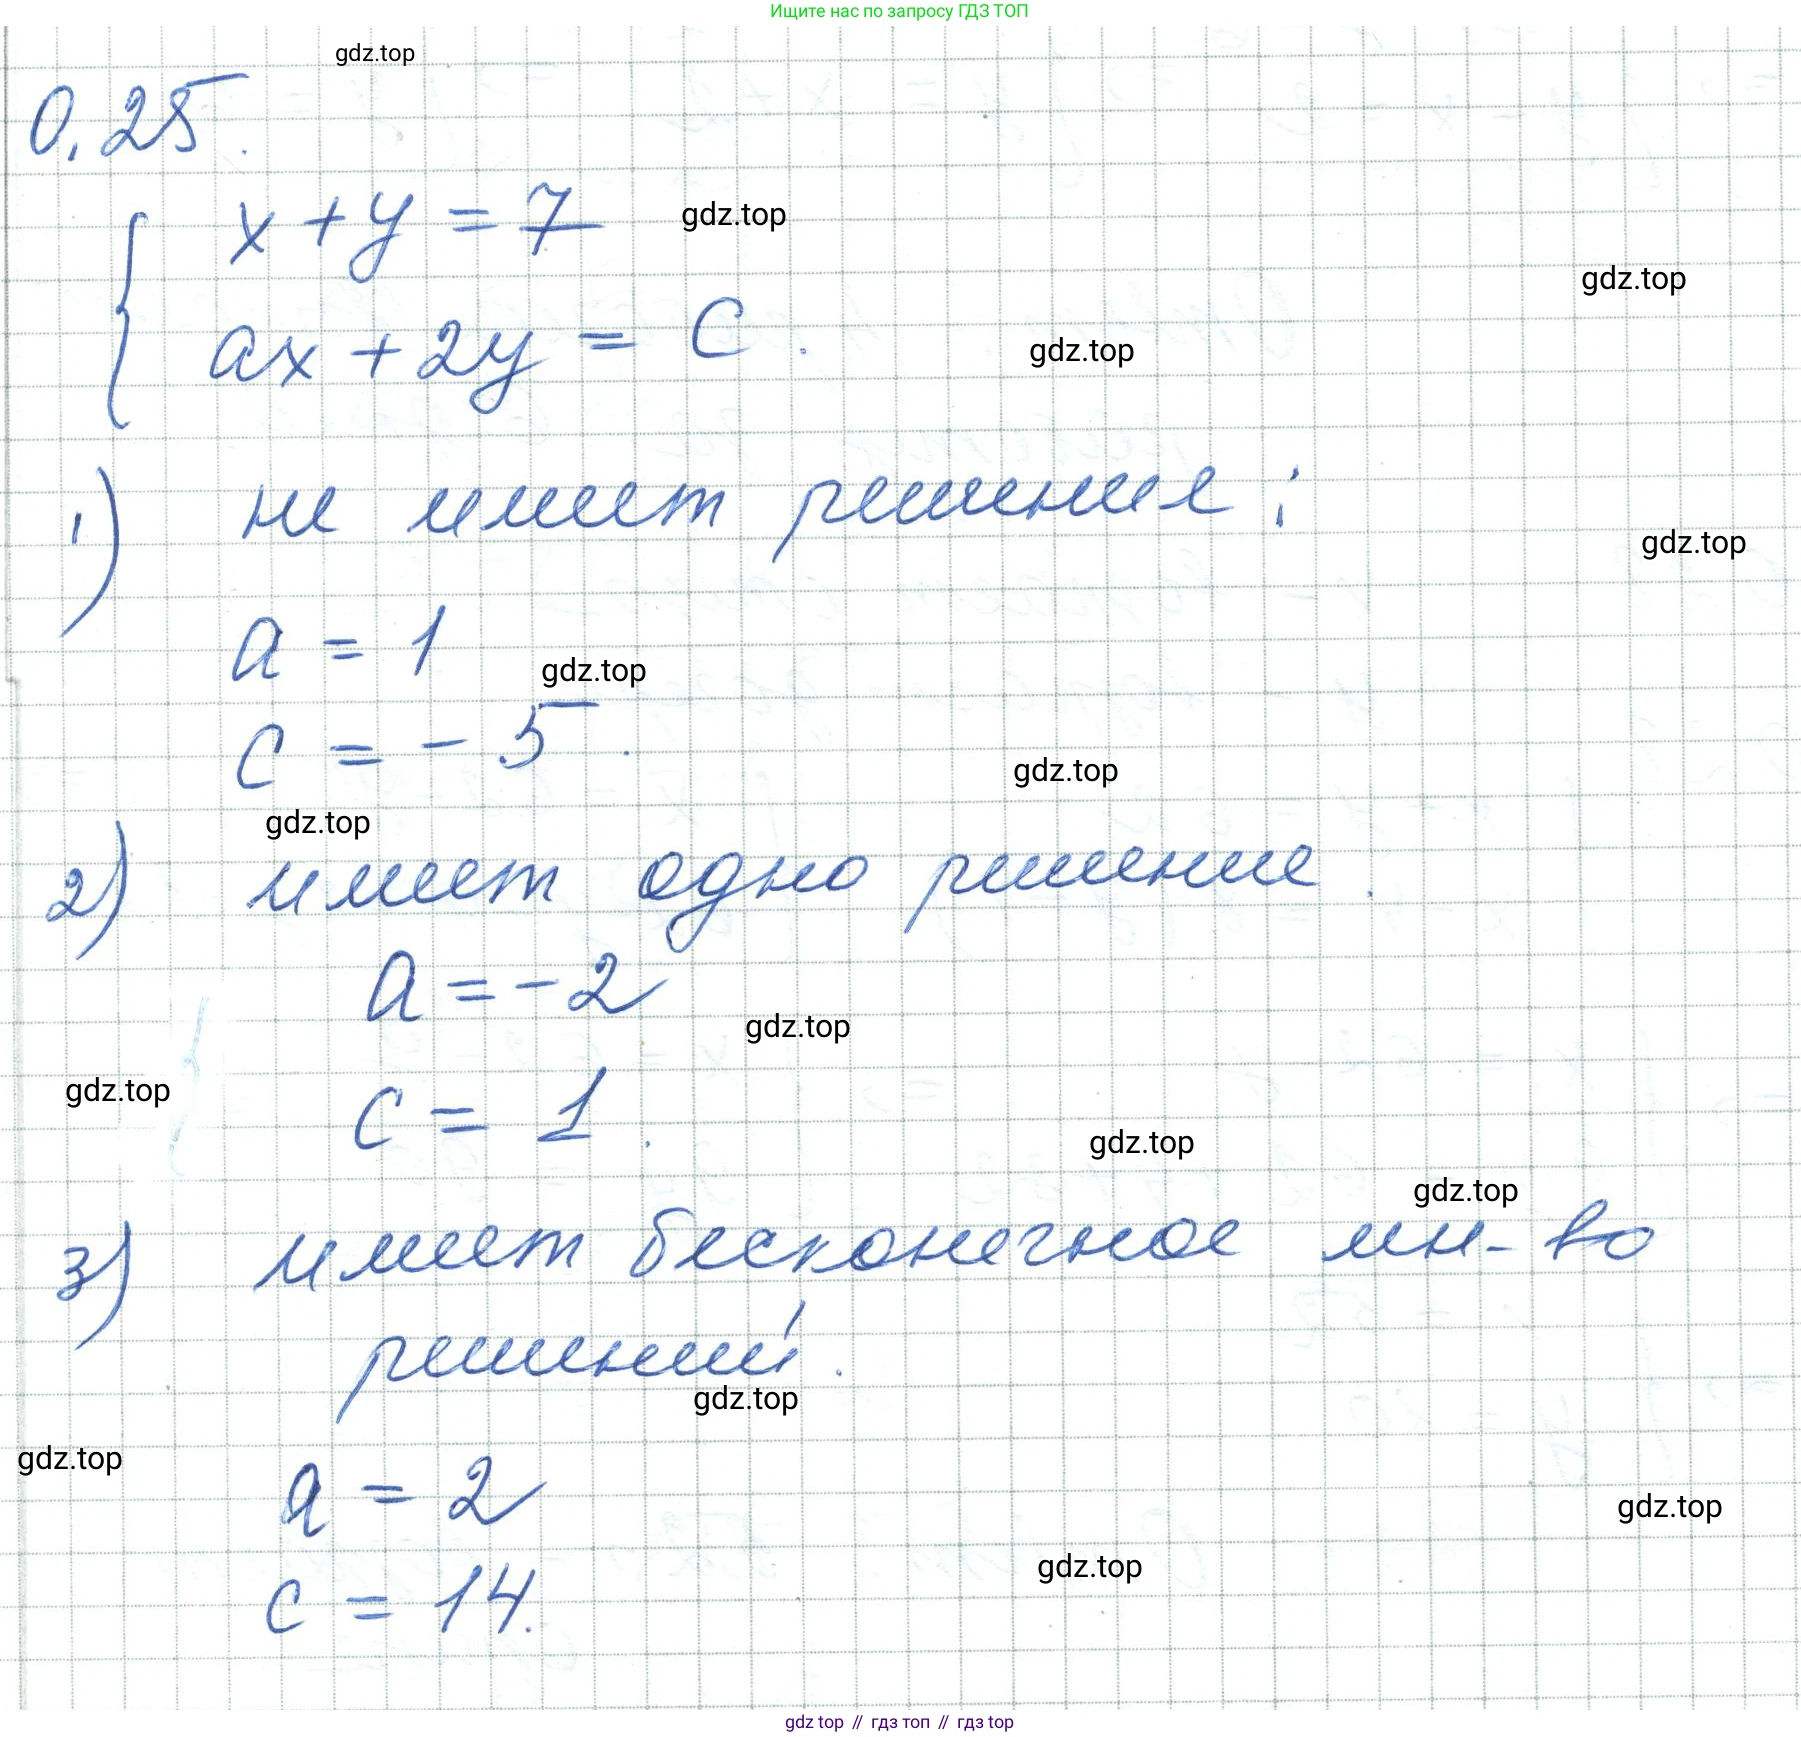 Ищите нас по запросу ГДЗ ТОП
gdz.top
0.25.
x + y = 7
gdz.top
gdz.top
ax + 2y = c.
gdz.top
1) не имеет решение:
gdz.top
a = 1
gdz.top
c = - 5.
gdz.top
gdz.top
2) имеет одно решение.
a = - 2
gdz.top
gdz.top
c = 1.
gdz.top
gdz.top
3) имеет бесконечное мн-во
решений.
gdz.top
gdz.top
a = 2
gdz.top
gdz.top
c = 14.
gdz top // гдз топ // гдз top